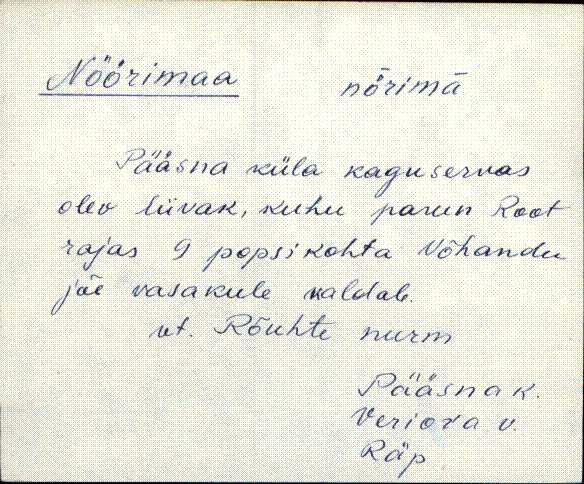 Nöörimaa nȫrimā
Pääsna küla kaguservas
olev liivak, kuhu parun Root
rajas 9 popsikohta Võhandu
jõe vasakule kaldale.
vt. Rõuhte nurm
Pääsna k.
Veriora v.
Räp